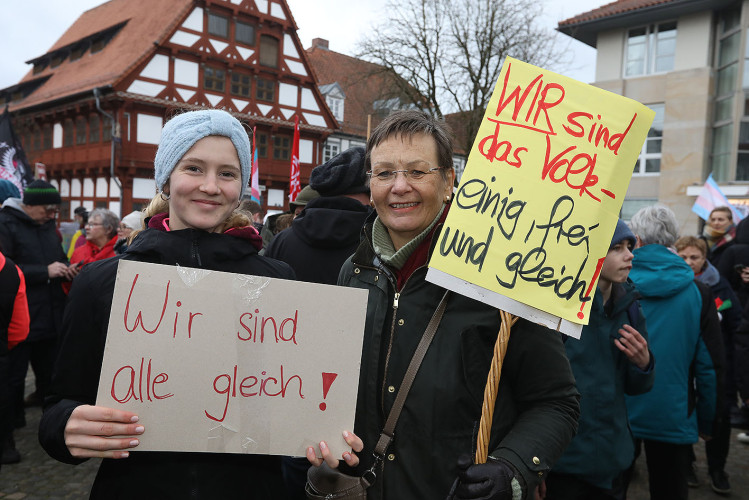 Wir sind
alle gleich!
WIR sind
das Volk-
einig, frei
und gleich!